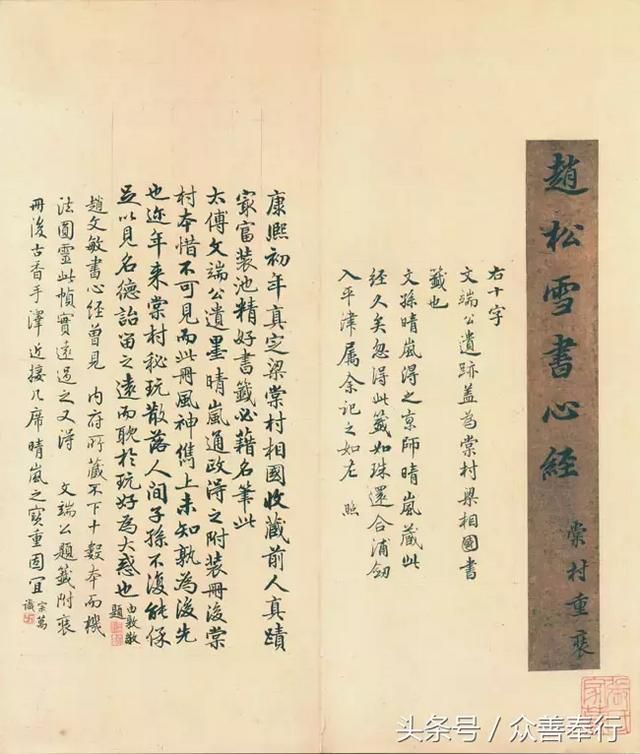 趙松雪書心經
棠村重裝
右十字
文端公遺跡蓋為棠村梁相國書
籤也
文孫晴嵐得之京師晴嵐藏此
經久矣忽得此籤如珠還合浦劒
入平津屬余記之如左 照
康熙初年真定梁棠村相國收藏前人真蹟
冣富裝池精好書籤必藉名筆此
太傅文端公遺墨晴嵐通政得之附裝冊後棠
村本惜不可見而此冊風神儁上未知孰為後先
也近年来棠村秘玩散落人間子孫不復能保
足以見名德詒留之遠而耽於玩好為大惑也 由敦敬
題
趙文敏書心經曾見 內府所藏不下十數本而機
法圓靈此幀實遠過之又得 文端公題籤附裝
冊後古香手澤近接几席晴嵐之寶重固宜 宗萬
識
头条号／众善奉行